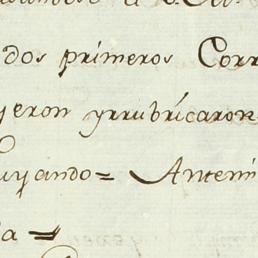 dos primeros Corr
yeron yrrubricaron
uyando= Antemi
a =